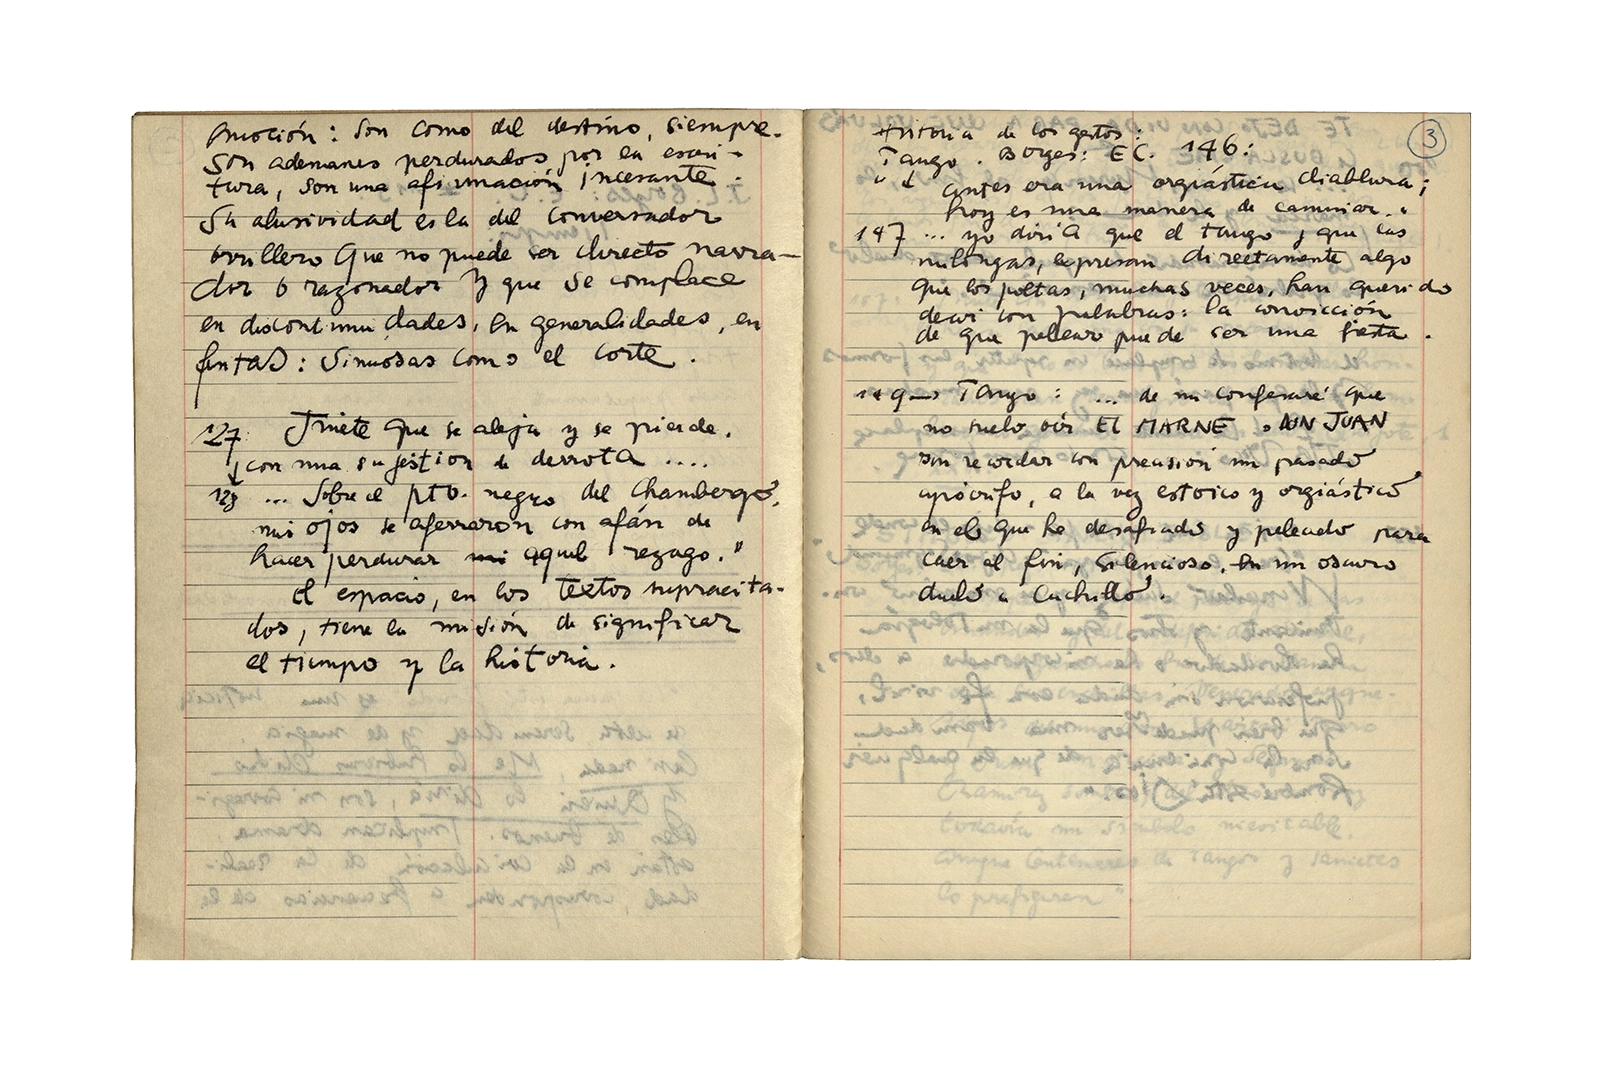 emoción: son como del destino, siempre.
Son ademanes perdurados por la escri-
tura, son una afirmación incesante.
Su alusividad es la del conversador
orillero que no puede ser directo narra-
dor o razonador y que se complace
en discontinuidades, en generalidades, en
fintas: sinuosas como el corte.
127: Jinete que se aleja y se pierde,
↓ con una sugestión de derrota ....
128 ... Sobre el pto. negro del chambergo,
mis ojos se aferraron con afán de
hacer perdurar mi aquel rezago."
El espacio, en los textos supracita-
dos, tiene la misión de significar
el tiempo y la historia.
3
Historia de los gestos:
Tango. Borges: EC. 146:
↓ antes era una orgiástica diablura;
hoy es una manera de caminar."
147 ... yo diría que el tango y que las
milongas, expresan directamente algo
que los poetas, muchas veces, han querido
decir con palabras: la convicción
de que pelear puede ser una fiesta.
149 → Tango: ... de mi confesaré que
no suelo oír El MARNE o DON JUAN
sin recordar con precisión un pasado
apócrifo, a la vez estoico y orgiástico
en el que he desafiado y peleado para
caer al fin, silencioso, en un oscuro
duelo a cuchillo.
todavía un símbolo inevitable,
aunque centenares de tangos y sainetes
lo prefiguren"